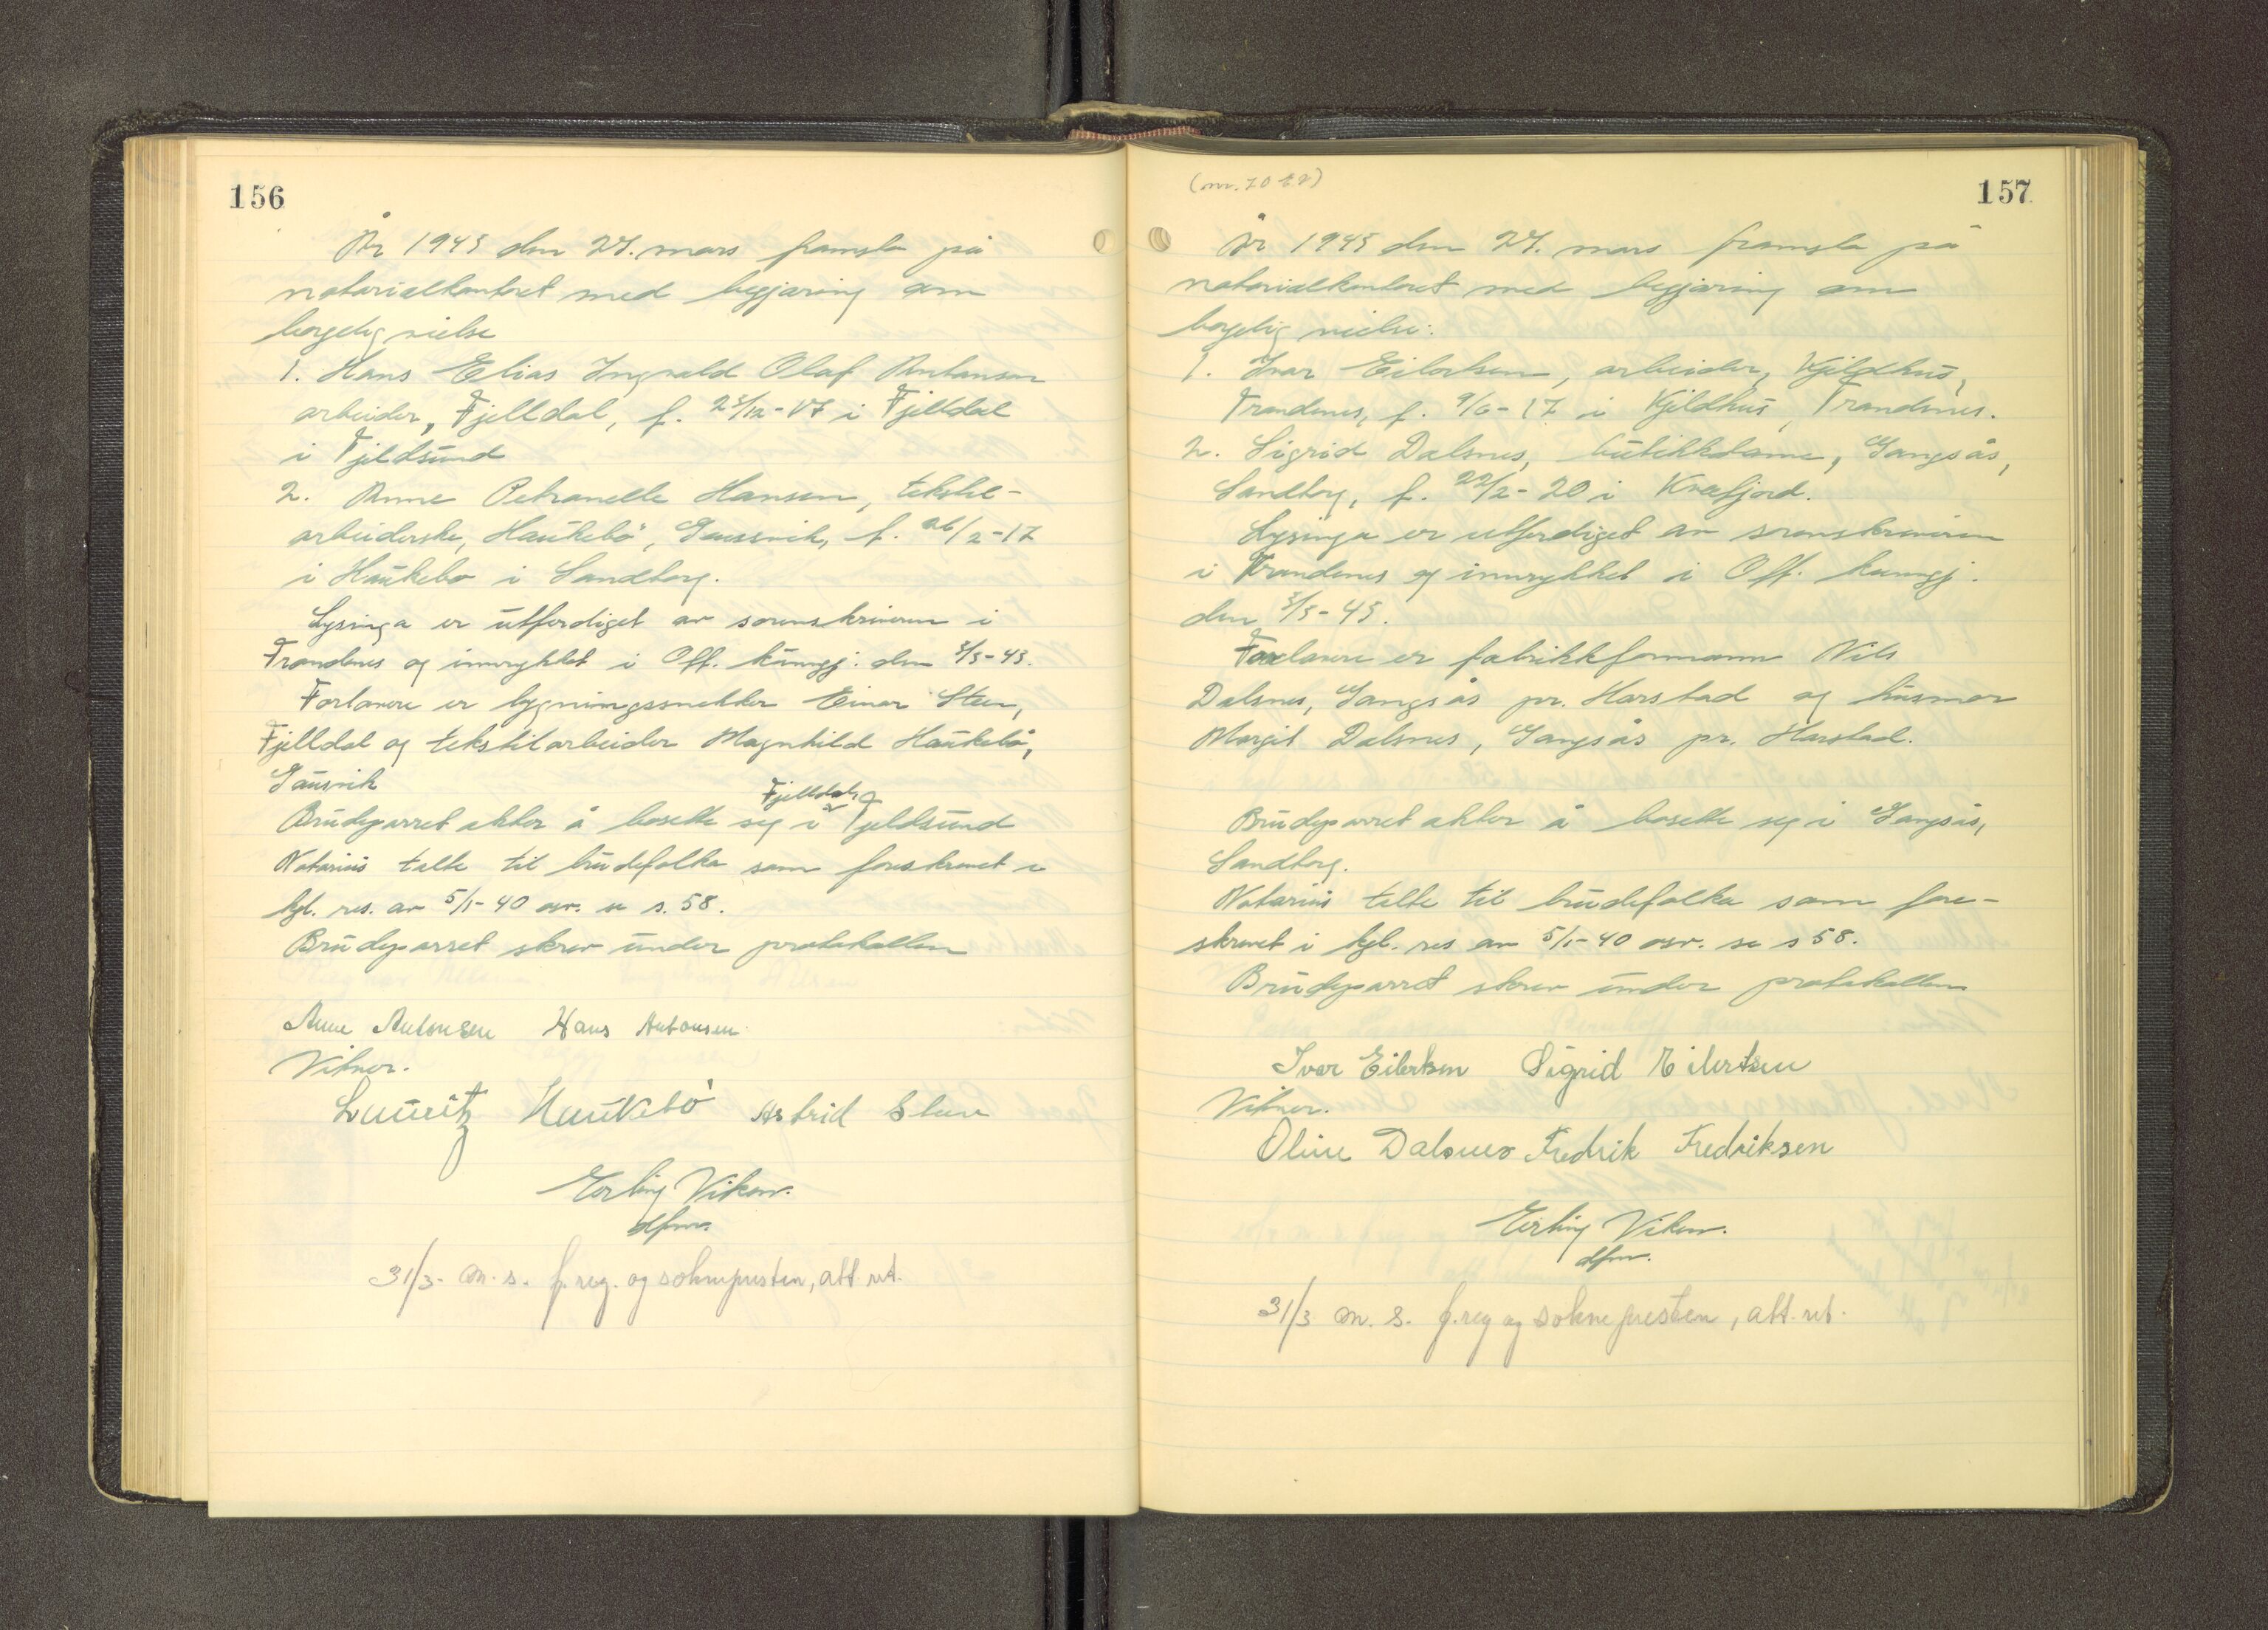 156
År 1945 den 24. mars framsto på
notarialkontoret med begjæring om
borgelig vielse
1. Hans Elias Ingvald Olaf Antonsen
arbeider, Fjelldal, f. 25/12-17 i Fjelldal
i Fjeldsund
2. Anne Petranelle Hansen, tekstil-
arbeiderske, Haukebø, Gausvik, f. 26/2-17
i Haukebø i Sandtorg.
Lysinga er utferdiget av sorenskriveren i
Trondenes og innrykket i Off. kunngj. den 5/3-45.
Forlovere er bygningssnekker Einar Steen,
Fjelldal og tekstilarbeider Magnhild Haukebø,
Gausvik
Fjelldal
Brudeparret akter å bosette seg i Fjeldsund
Notarius talte til brudefolka som foreskrevet i
kgl. res. av 5/1-40 osv. se s. 58.
Brudeparret skrev under protokollen
Anne Antonsen Hans Antonsen
Vitner.
Lauritz Haukebø Astrid Steen
Erling Viken.
dfm.
31/3- m. s. f.reg. og soknepresten, att. ret.
(nr. 70 )
157
År 1945 den 24. mars framsto på
notarialkontoret med begjæring om
borgelig vielse:
1. Ivar Eilertsen, arbeider, Kjeldhus,
Trondenes, f. 9/6-17 i Kjeldhus, Trondenes.
2. Sigrid Dalsnes, butikkdame, Gangsås,
Sandtorg, f. 22/2-20 i Kvæfjord.
Lysinga er utferdiget av sorenskriveren
i Trondenes og innrykket i Off. kunngj.
den 5/3-45.
Forlovere er fabrikkformann Nils
Dalsnes, Gangsås pr. Harstad og husmor
Margit Dalsnes, Gangsås pr. Harstad.
Brudeparret akter å bosette seg i Gangsås,
Sandtorg.
Notarius talte til brudefolka som fore-
skrevet i kgl. res av 5/1-40 osv. se s 58.
Brudeparret skrev under protokollen
Ivar Eilertsen Sigrid Eilertsen
Vitner.
Oline Dalsnes Fredrik Fredriksen
Erling Viken.
dfm.
31/3 m. s. f.reg og soknepresten, att. ret.